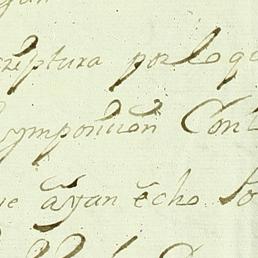 criptura por lo q
ymposicion Con
ue ayan echo